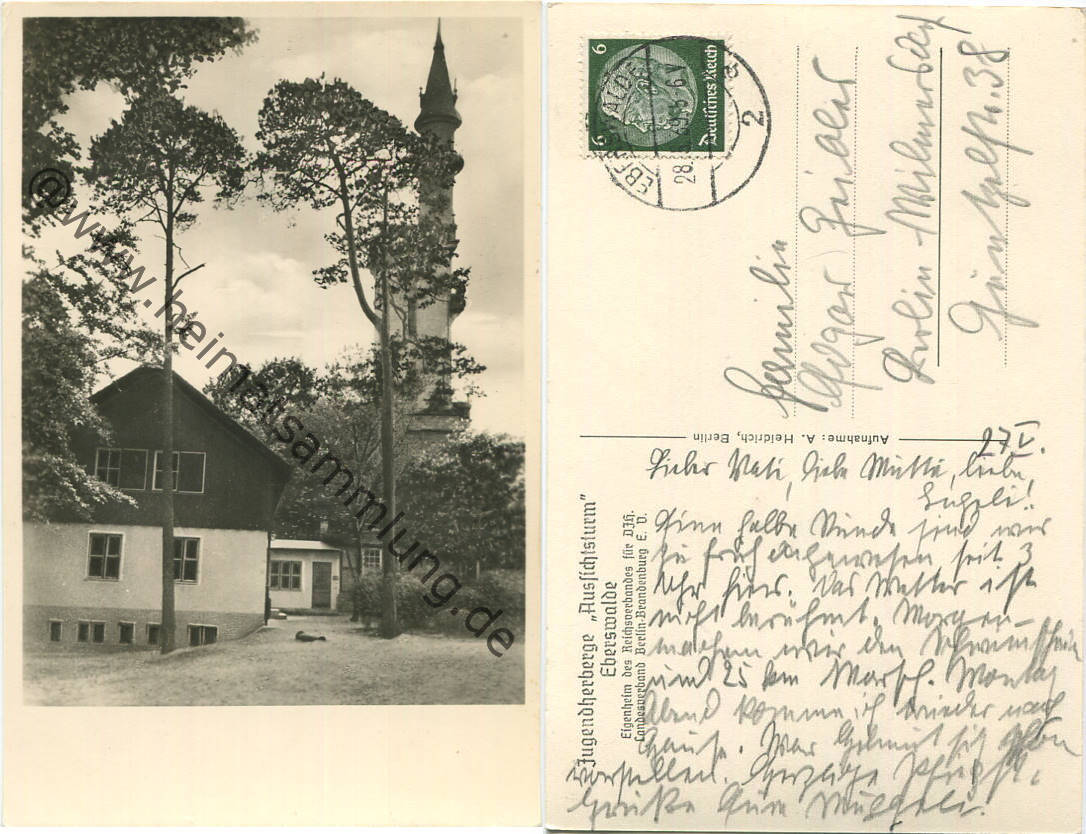 @www.heimatsammlung.de
6 6
Deutsches Reich
EBERSWALDE
28.5.
2
Familie
Edgar Zeidler
Berlin-Wilmersdorf
Güntzelstr. 38
Aufnahme: A. Heidrich, Berlin
Jugendherberge „Aussichtsturm“
Eberswalde
Eigenheim des Reichsverbandes für DJH.
Landesverband Berlin-Brandenburg E. V.
27 V.
Lieber Vati, liebe Mutti, liebe
Eine halbe Stunde sind wir
zu früh angewesen seit 3
Uhr hier. Das Wetter ist
nicht berühmt. Morgen
machen wir den Schwimmschein
und 25 km Marsch. Montag
Abend komme ich wieder nach
Hause. War Helmut sich schon
vorstellen. Herzliche Pfingst-
Grüße Eure